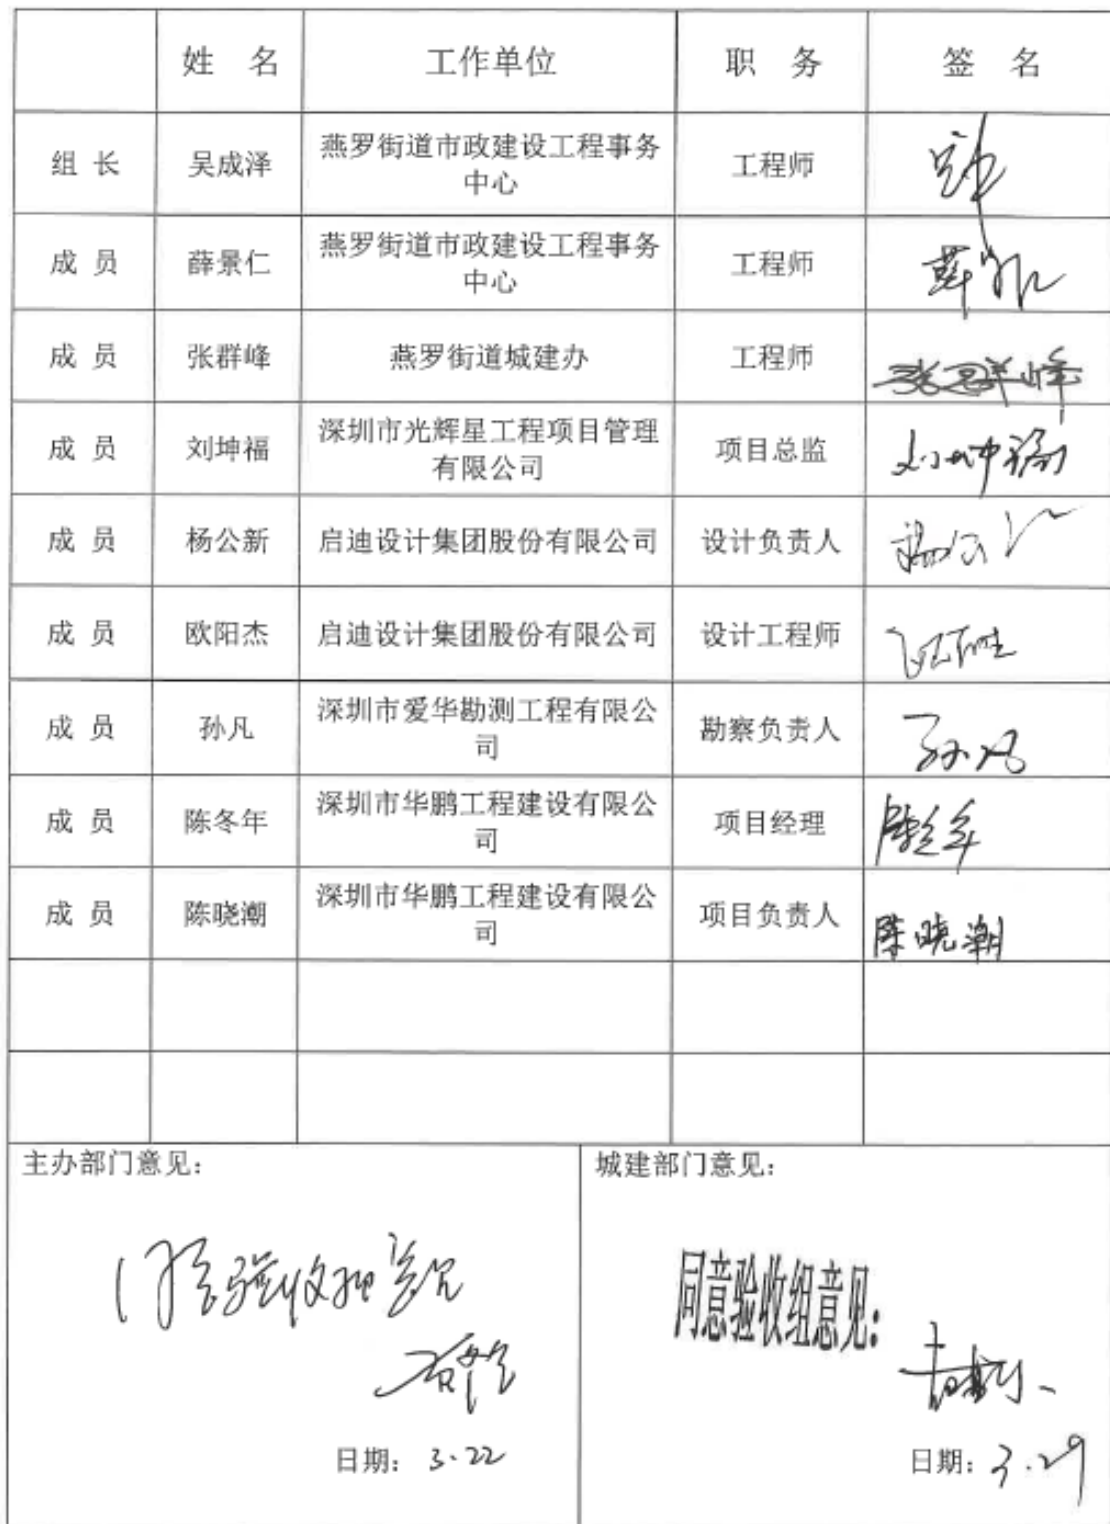 姓 名 工作单位 职 务 签 名
组 长 吴成泽 燕罗街道市政建设工程事务 工程师
中心
成 员 薛景仁 燕罗街道市政建设工程事务 工程师
中心
成 员 张群峰 燕罗街道城建办 工程师 张群峰
成 员 刘坤福 深圳市光辉星工程项目管理 项目总监 刘坤福
有限公司
成 员 杨公新 启迪设计集团股份有限公司 设计负责人 杨公新
成 员 欧阳杰 启迪设计集团股份有限公司 设计工程师
成 员 孙凡 深圳市爱华勘测工程有限公 勘察负责人 孙凡
司
成 员 陈冬年 深圳市华鹏工程建设有限公 项目经理 陈冬年
司
成 员 陈晓潮 深圳市华鹏工程建设有限公 项目负责人 陈晓潮
司
主办部门意见：
同意验收组意见
日期：3.22
城建部门意见：
同意验收组意见：
日期：3.29